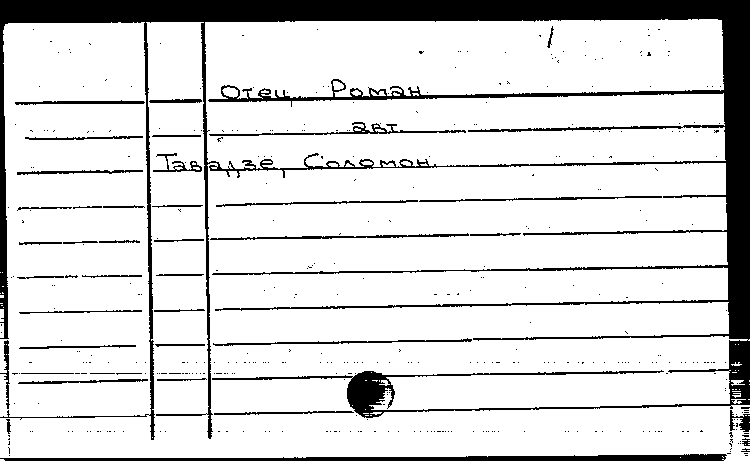 Отец Роман
авт.
Тавадзе, Соломон.